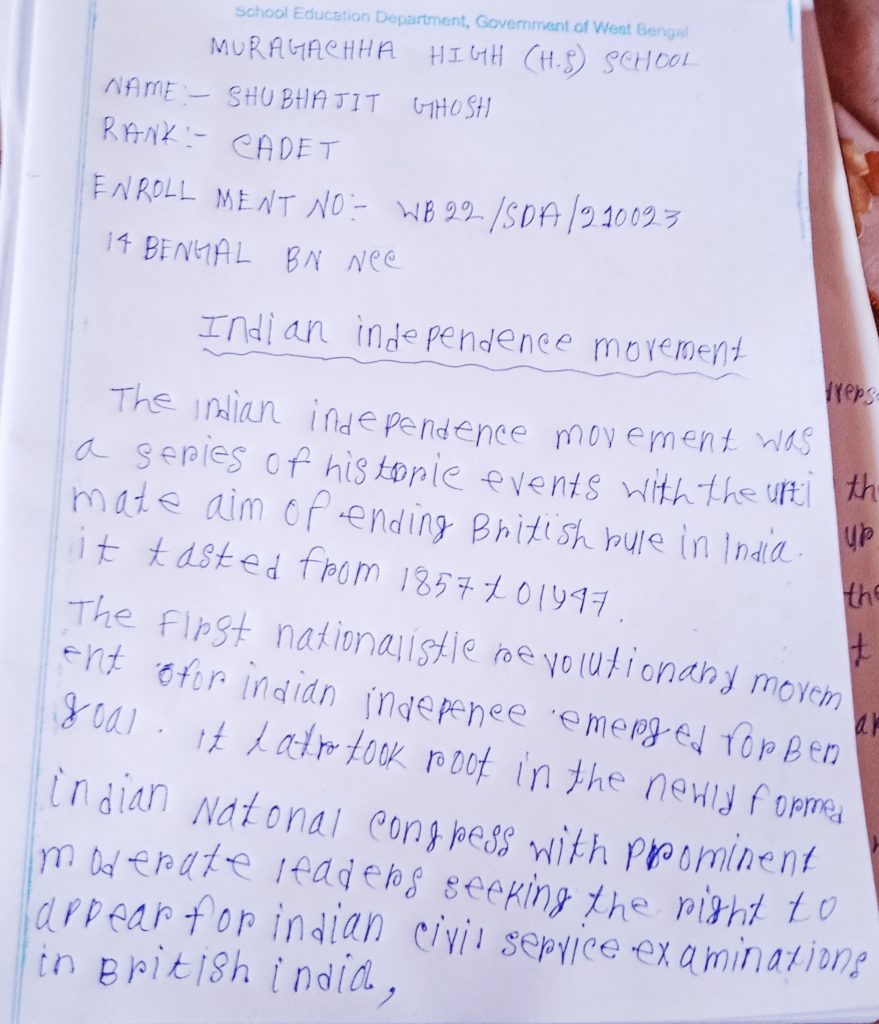 School Education Department, Government of West Bengal
MURAGACHHA HIGH (H.S) SCHOOL
NAME:- SHUBHAJIT GHOSH
RANK:- CADET
ENROLL MENT NO:- WB22/SDA/210023
14 BENGAL BN NCC
Indian independence movement
The indian independence movement was
a series of historic events with the urti
mate aim of ending British rule in India.
it tasted from 1857 to 1947
The First nationalistic revolutionary movem
ent ofor indian indepence emerged for Ben
goal. it latr took root in the newly formed
indian Natonal congress with prominent
moderate leaders seeking the right to
appear for indian civil service examinations
in British india,
th
up
the
t